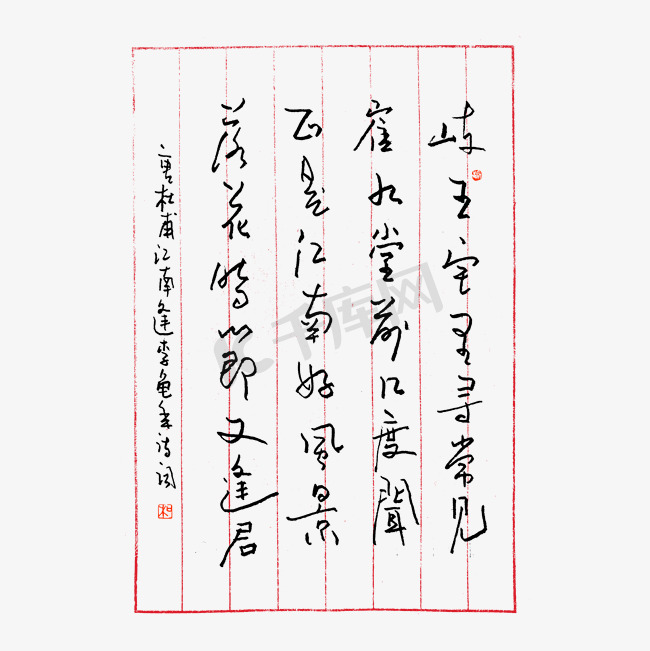 岐王宅里寻常見
崔九堂前几度聞
正是江南好風景
落花時節又逢君
唐杜甫江南逢李龟年诗词
千库网